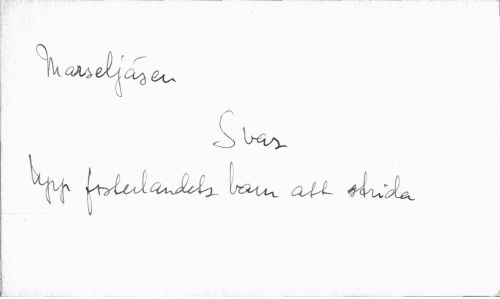 Marseljäsen
Svar
Upp fosterlandets barn att strida